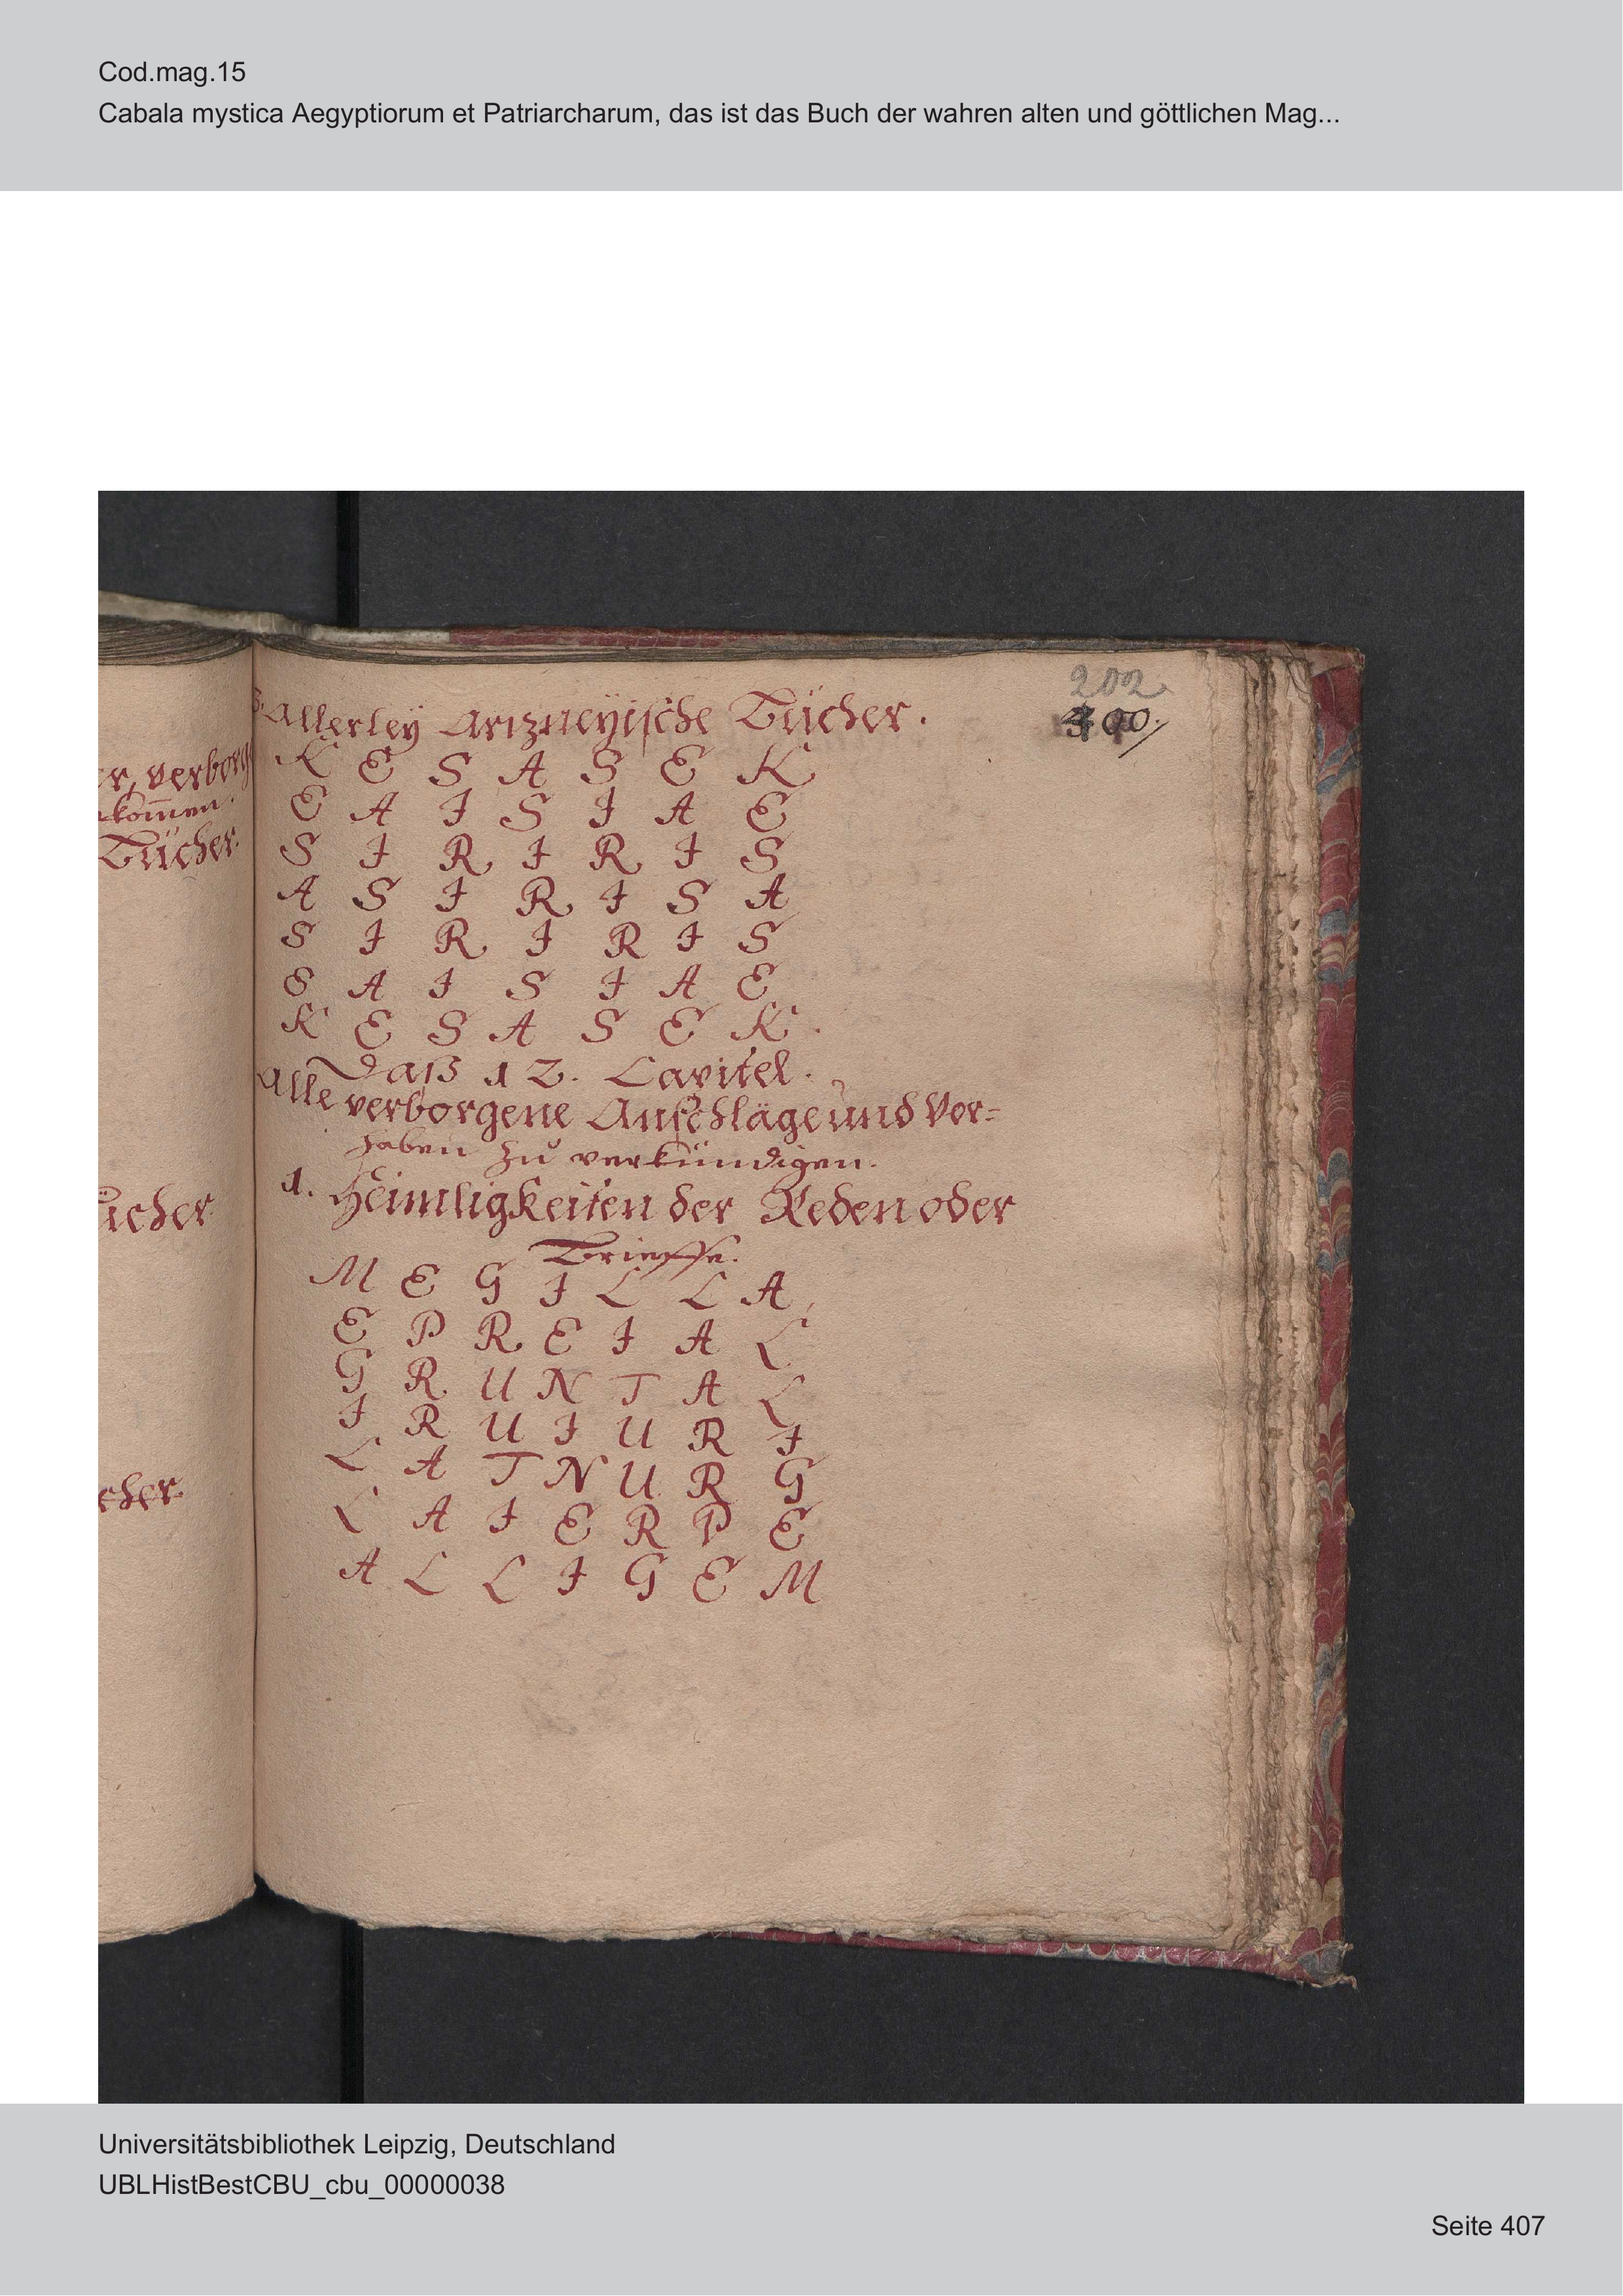 Cod.mag.15
Cabala mystica Aegyptiorum et Patriarcharum, das ist das Buch der wahren alten und göttlichen Mag...
202
400.
r, verborg
kom̄en.
Bücher.
ücher
cher.
3. Allerleÿ Artzneÿische Bücher.
K E S A S E K
E A I S I A E
S I R I R I S
A S I R I S A
S I R I R I S
E A I S I A E
K E S A S E K.
Daß 12. Capitel.
Alle verborgene Anschläge und Vor=
haben zu verkündigen.
1. Heimligkeiten der Reden oder
Brieffe.
M E G I L L A
E P R E I A L
G R U N T A L
I R U I U R I
L A T N U R G
L A I E R P E
A L L I G E M
Universitätsbibliothek Leipzig, Deutschland
UBLHistBestCBU_cbu_00000038
Seite 407